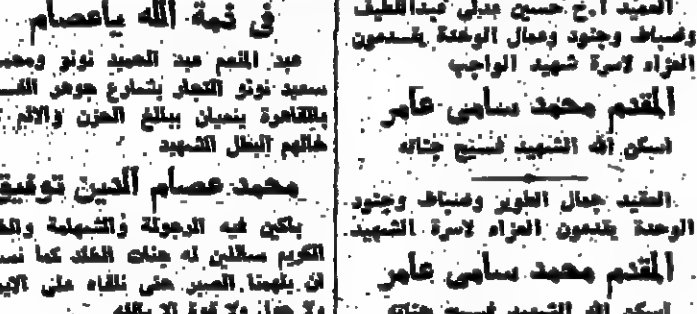 العميد أ.ح حسين عدلى عبداللطيف
وضباط وجنود وعمال الوحدة يقدمون
العزاء لاسرة شهيد الواجب
المقدم محمد سامى عامر
اسكن الله الشهيد فسيح جناته
العقيد جمال الطوير وضباط وجنود
الوحدة يقدمون العزاء لاسرة الشهيد
المقدم محمد سامى عامر
اسكن الله الشهيد فسيح جناته
فى ذمة الله ياعصام
عبد المنعم عبد الحميد نونو
سعيد نونو التجار بشارع جوهر
بالقاهرة ينعيان ببالغ الحزن والالم
خالهم البطل الشهيد
محمد عصام الدين توفيق
باكين فيه الرجولة والشهامة
الكريم سائلين له جنات الخلد كما
ان يلهمنا الصبر حتى نلقاه على
ولا حول ولا قوة الا بالله